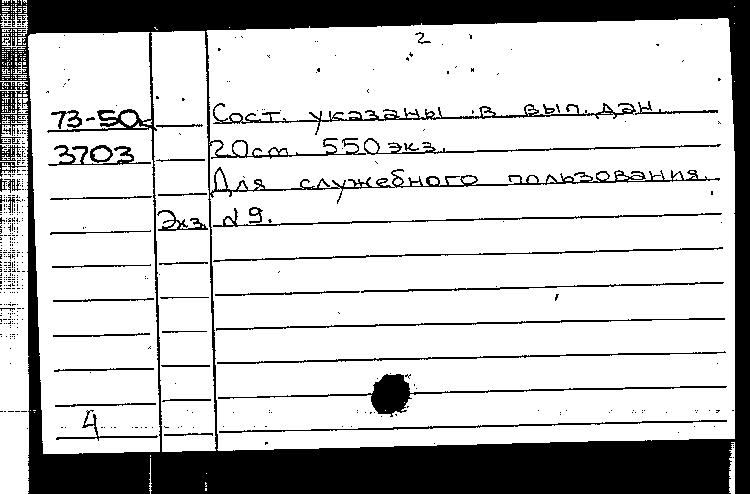 2
73-50с Сост. указаны в вып. дан.
3703 20см. 550 экз.
Для служебного пользования.
Экз. № 9.
4